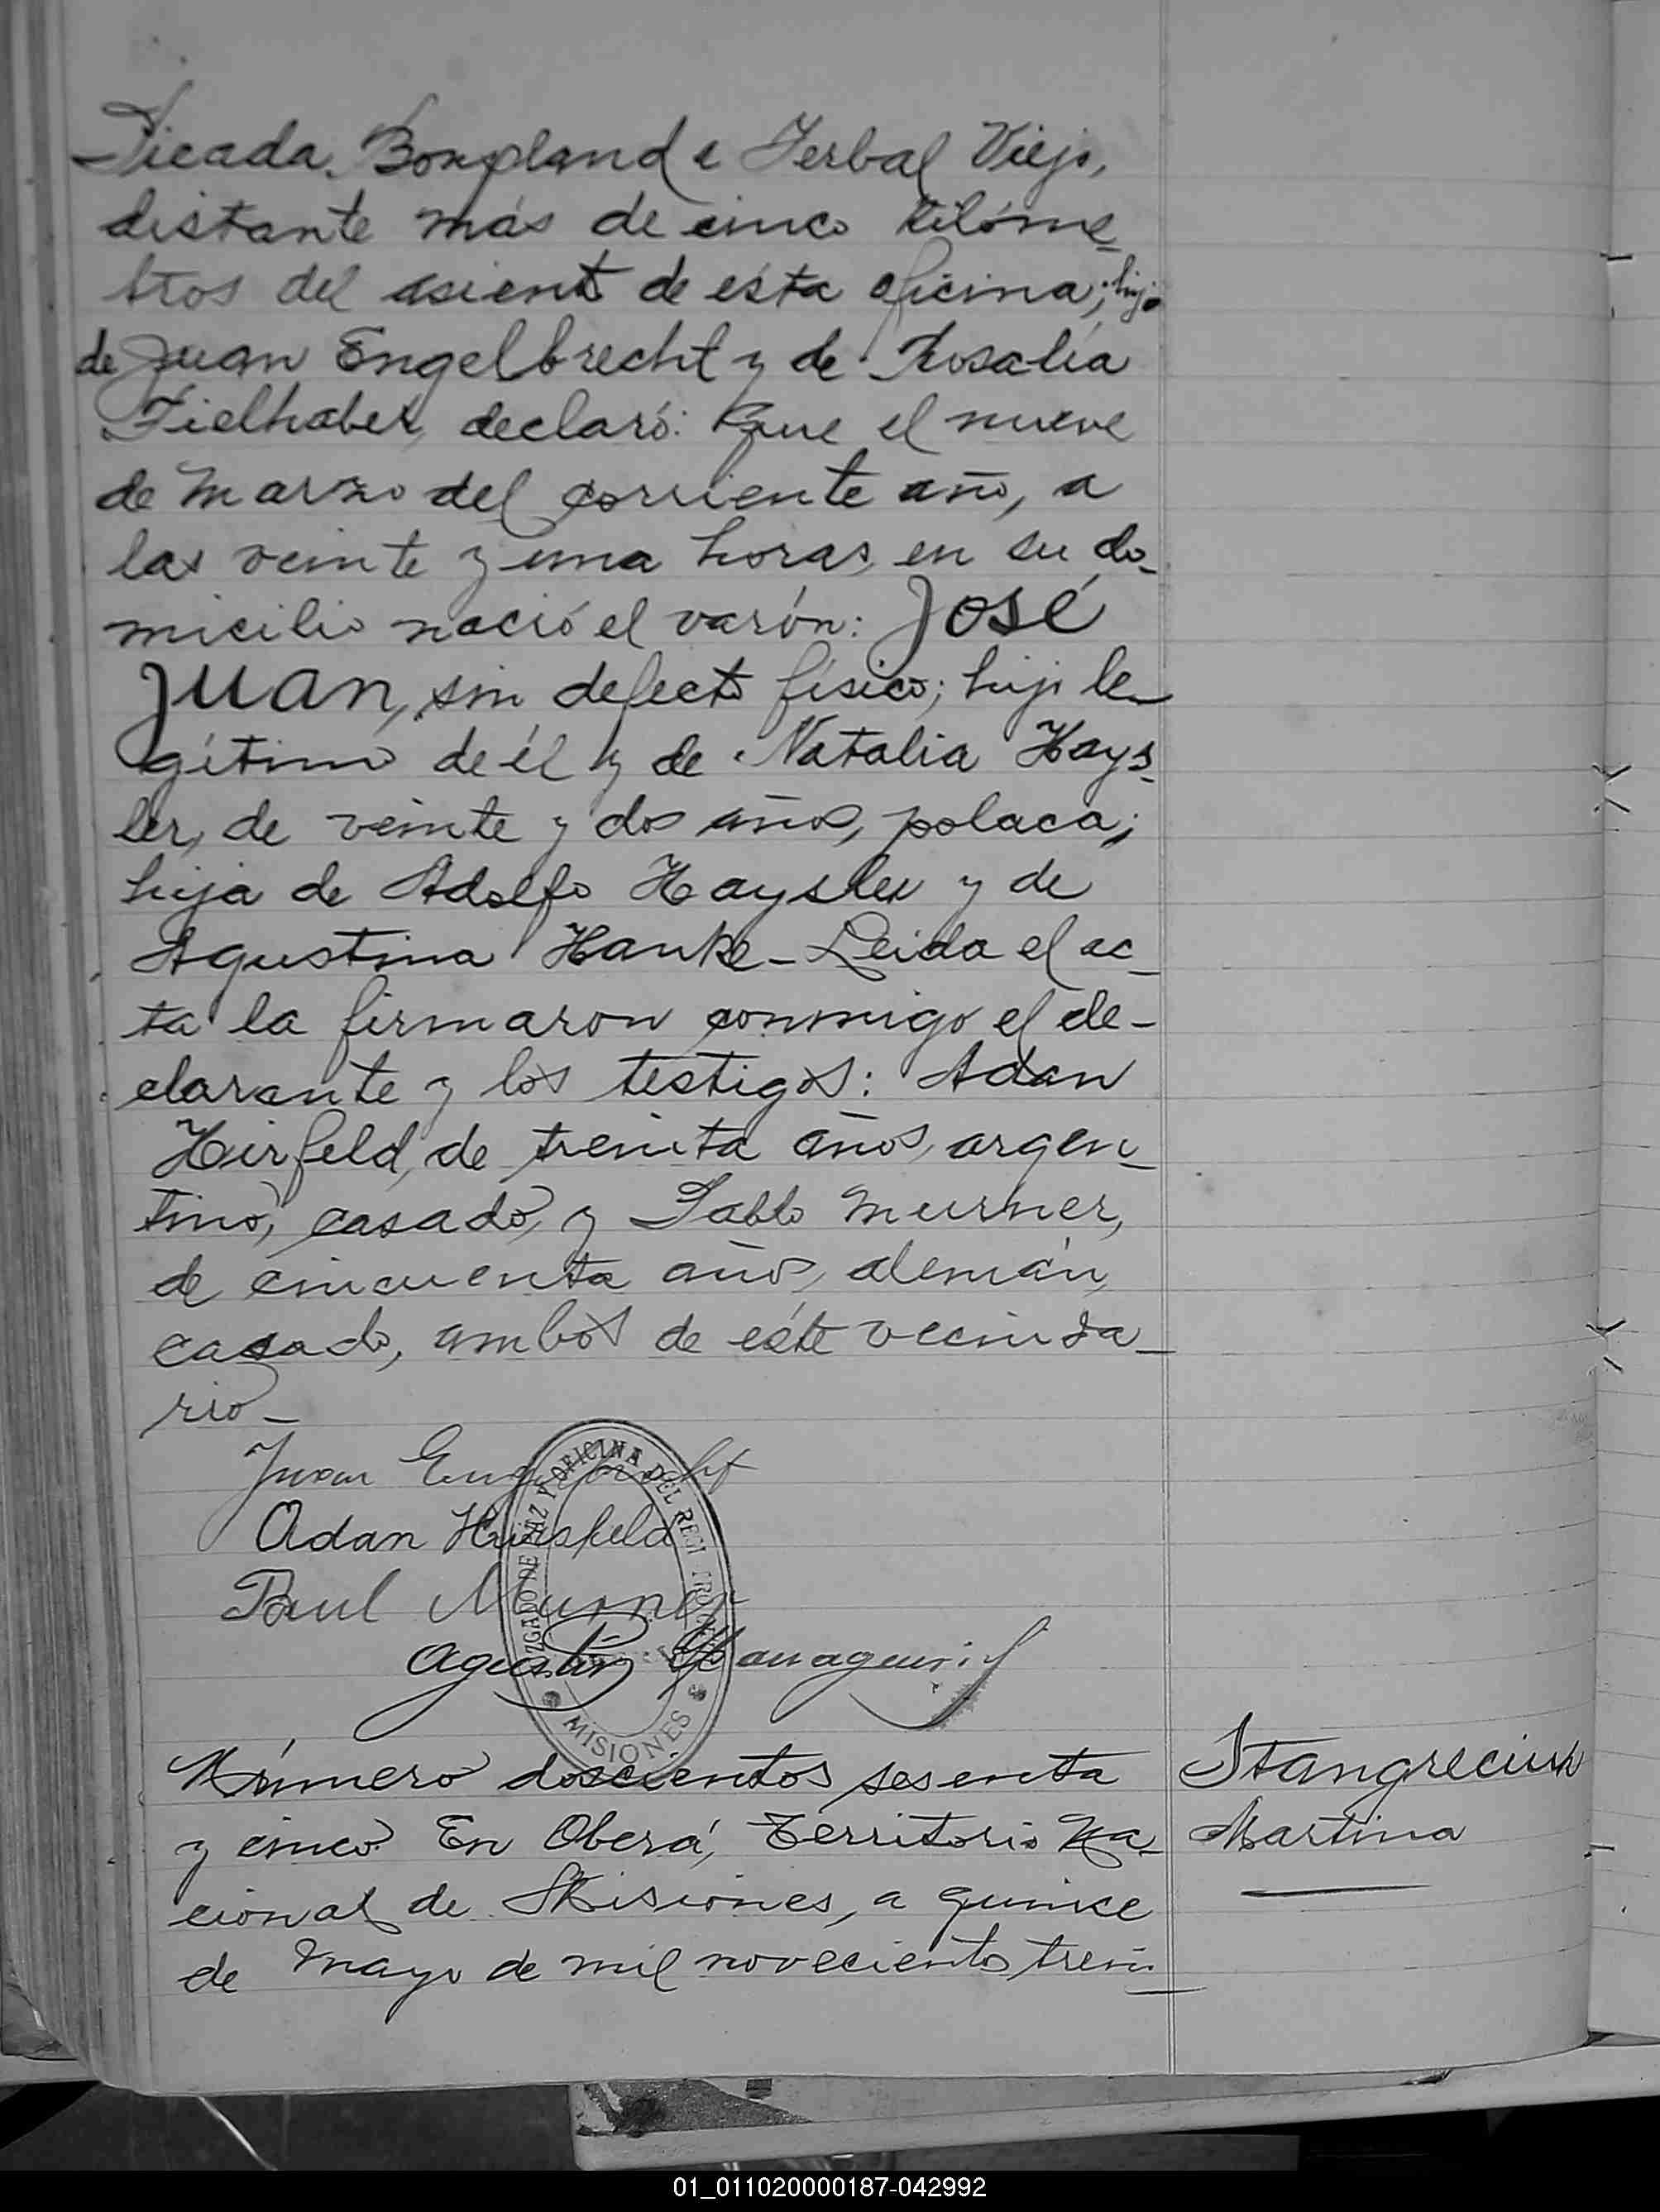 Picada Bompland e Yerbal Viejo,
distante más de cinco kilóme-
tros del asiento de ésta oficina; hijo
de Juan Engelbrecht y de Rosalía
Fielhaber, declaró: Que el nueve
de Marzo del corriente año, a
las veinte y una horas, en su do-
micilio nació el varón: José
Juan, sin defecto físico; hijo le-
gítimo de él y de Natalia Hays-
ler, de veinte y dos años, polaca;
hija de Adolfo Haysler y de
Agustina Hanke - Leida el ac-
ta la firmaron conmigo el de-
clarante y los testigos: Adan
Hirfeld, de treinta años, argen-
tino, casado, y Pablo Murner,
de cincuenta años, alemán,
casado, ambos de éste vecinda-
rio -
Juan Engelbrecht
Adan Hirsfeld
Paul Murner
Agustin
JUZGADO DE PAZ Y OFICINA DEL REGISTRO
MISIONES
Número doscientos sesenta
y cinco. En Oberá, Territorio Na-
cional de Misiones, a quince
de Mayo de mil novecientos trein-
Stangreciuk
Martina
01_011020000187-042992